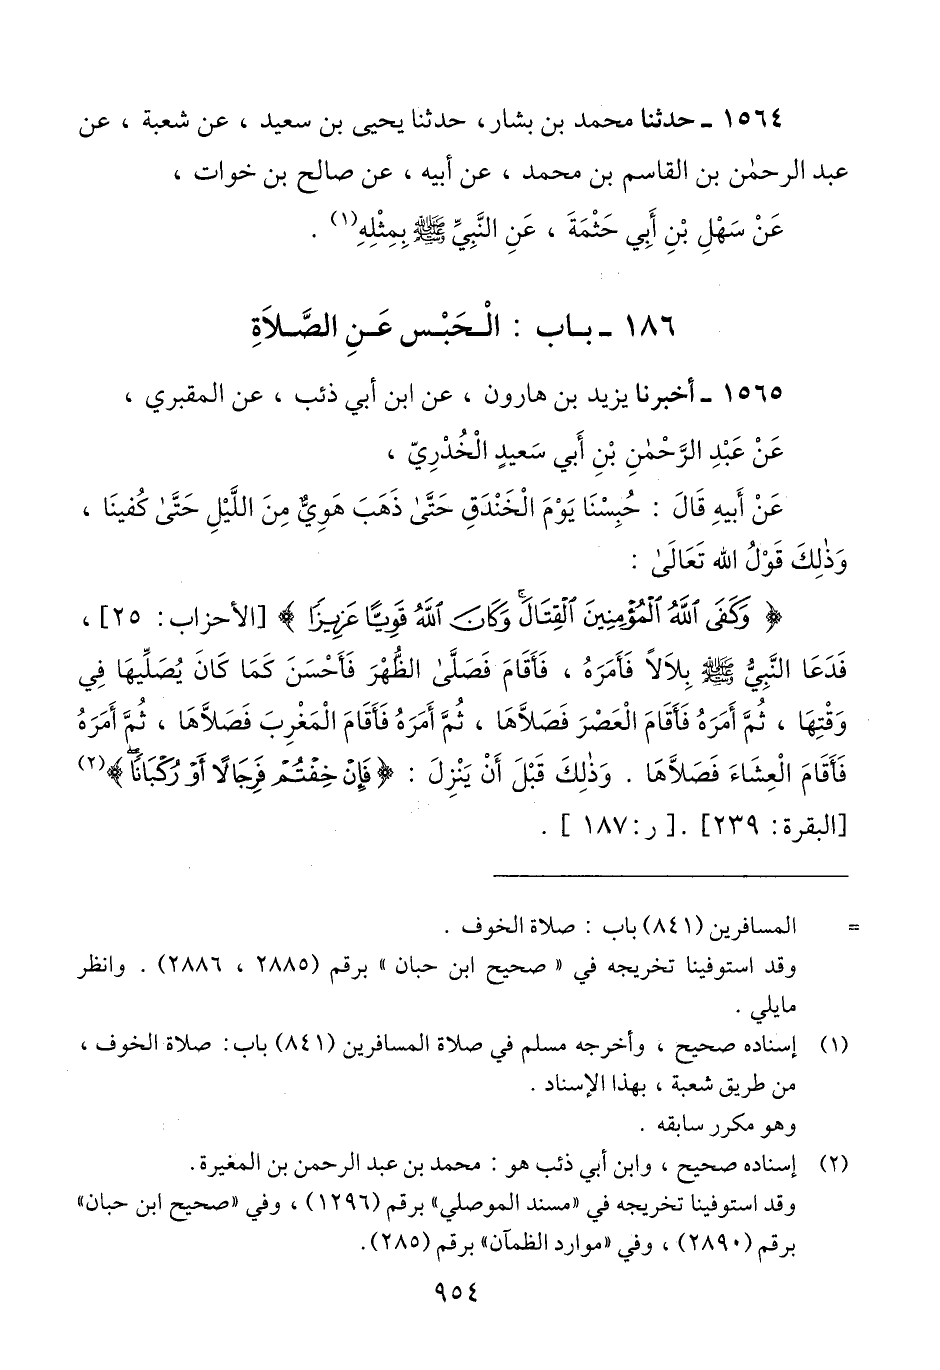 ١٥٦٤ ـ حدثنا محمد بن بشار، حدثنا يحيى بن سعيد ، عن شعبة ، عن
عبد الرحمٰن بن القاسم بن محمد ، عن أبيه ، عن صالح بن خوات ،
عَنْ سَهْلِ بْنِ أَبِي حَثْمَةَ ، عَنِ النَّبِيِّ ﷺ بِمِثْلِهِ(١) .
١٨٦ ـ بـاب : الْـحَبْـس عَـنِ الصَّـلاَةِ
١٥٦٥ ـ أخبرنا يزيد بن هارون ، عن ابن أبي ذئب ، عن المقبري ،
عَنْ عَبْدِ الرَّحْمٰنِ بْنِ أَبي سَعيدٍ الْخُدْرِيّ ،
عَنْ أَبيهِ قَالَ : حُبِسْنَا يَوْمَ الْخَنْدَقِ حَتَّىٰ ذَهَبَ هَوِيٌّ مِنَ اللَّيْلِ حَتَّىٰ كُفينَا ،
وَذٰلِكَ قَوْلُ الله تَعَالَىٰ :
﴿ وَكَفَى ٱللَّهُ ٱلْمُؤْمِنِينَ ٱلْقِتَالَۚ وَكَانَ ٱللَّهُ قَوِيًّا عَزِيزًا ﴾ [الأحزاب: ٢٥] ،
فَدَعَا النَّبِيُّ ﷺ بِلاَلاً فَأَمَرَهُ ، فَأَقَامَ فَصَلَّىٰ الظُّهْرَ فَأَحْسَنَ كَمَا كَانَ يُصَلِّيهَا فِي
وَقْتِهَا ، ثُمَّ أَمَرَهُ فَأَقَامَ الْعَصْرَ فَصَلاَّهَا ، ثُمَّ أَمَرَهُ فَأَقَامَ الْمَغْرِبَ فَصَلاَّهَا ، ثُمَّ أَمَرَهُ
فَأَقَامَ الْعِشَاءَ فَصَلاَّهَا . وَذٰلِكَ قَبْلَ أَنْ يَنْزِلَ : ﴿ فَإِنْ خِفْتُمْ فَرِجَالًا أَوْ رُكْبَانًاۖ ﴾(٢)
[البقرة: ٢٣٩] . [ ر: ١٨٧ ] .
= المسافرين (٨٤١) باب : صلاة الخوف .
وقد استوفينا تخريجه في « صحيح ابن حبان » برقم (٢٨٨٥ ، ٢٨٨٦) . وانظر
مايلي .
(١) إسناده صحيح ، وأخرجه مسلم في صلاة المسافرين (٨٤١) باب: صلاة الخوف ،
من طريق شعبة ، بهذا الإسناد .
وهو مكرر سابقه .
(٢) إسناده صحيح ، وابن أبي ذئب هو : محمد بن عبد الرحمن بن المغيرة.
وقد استوفينا تخريجه في «مسند الموصلي» برقم (١٢٩٦) ، وفي «صحيح ابن حبان»
برقم (٢٨٩٠) ، وفي «موارد الظمآن» برقم (٢٨٥).
٩٥٤